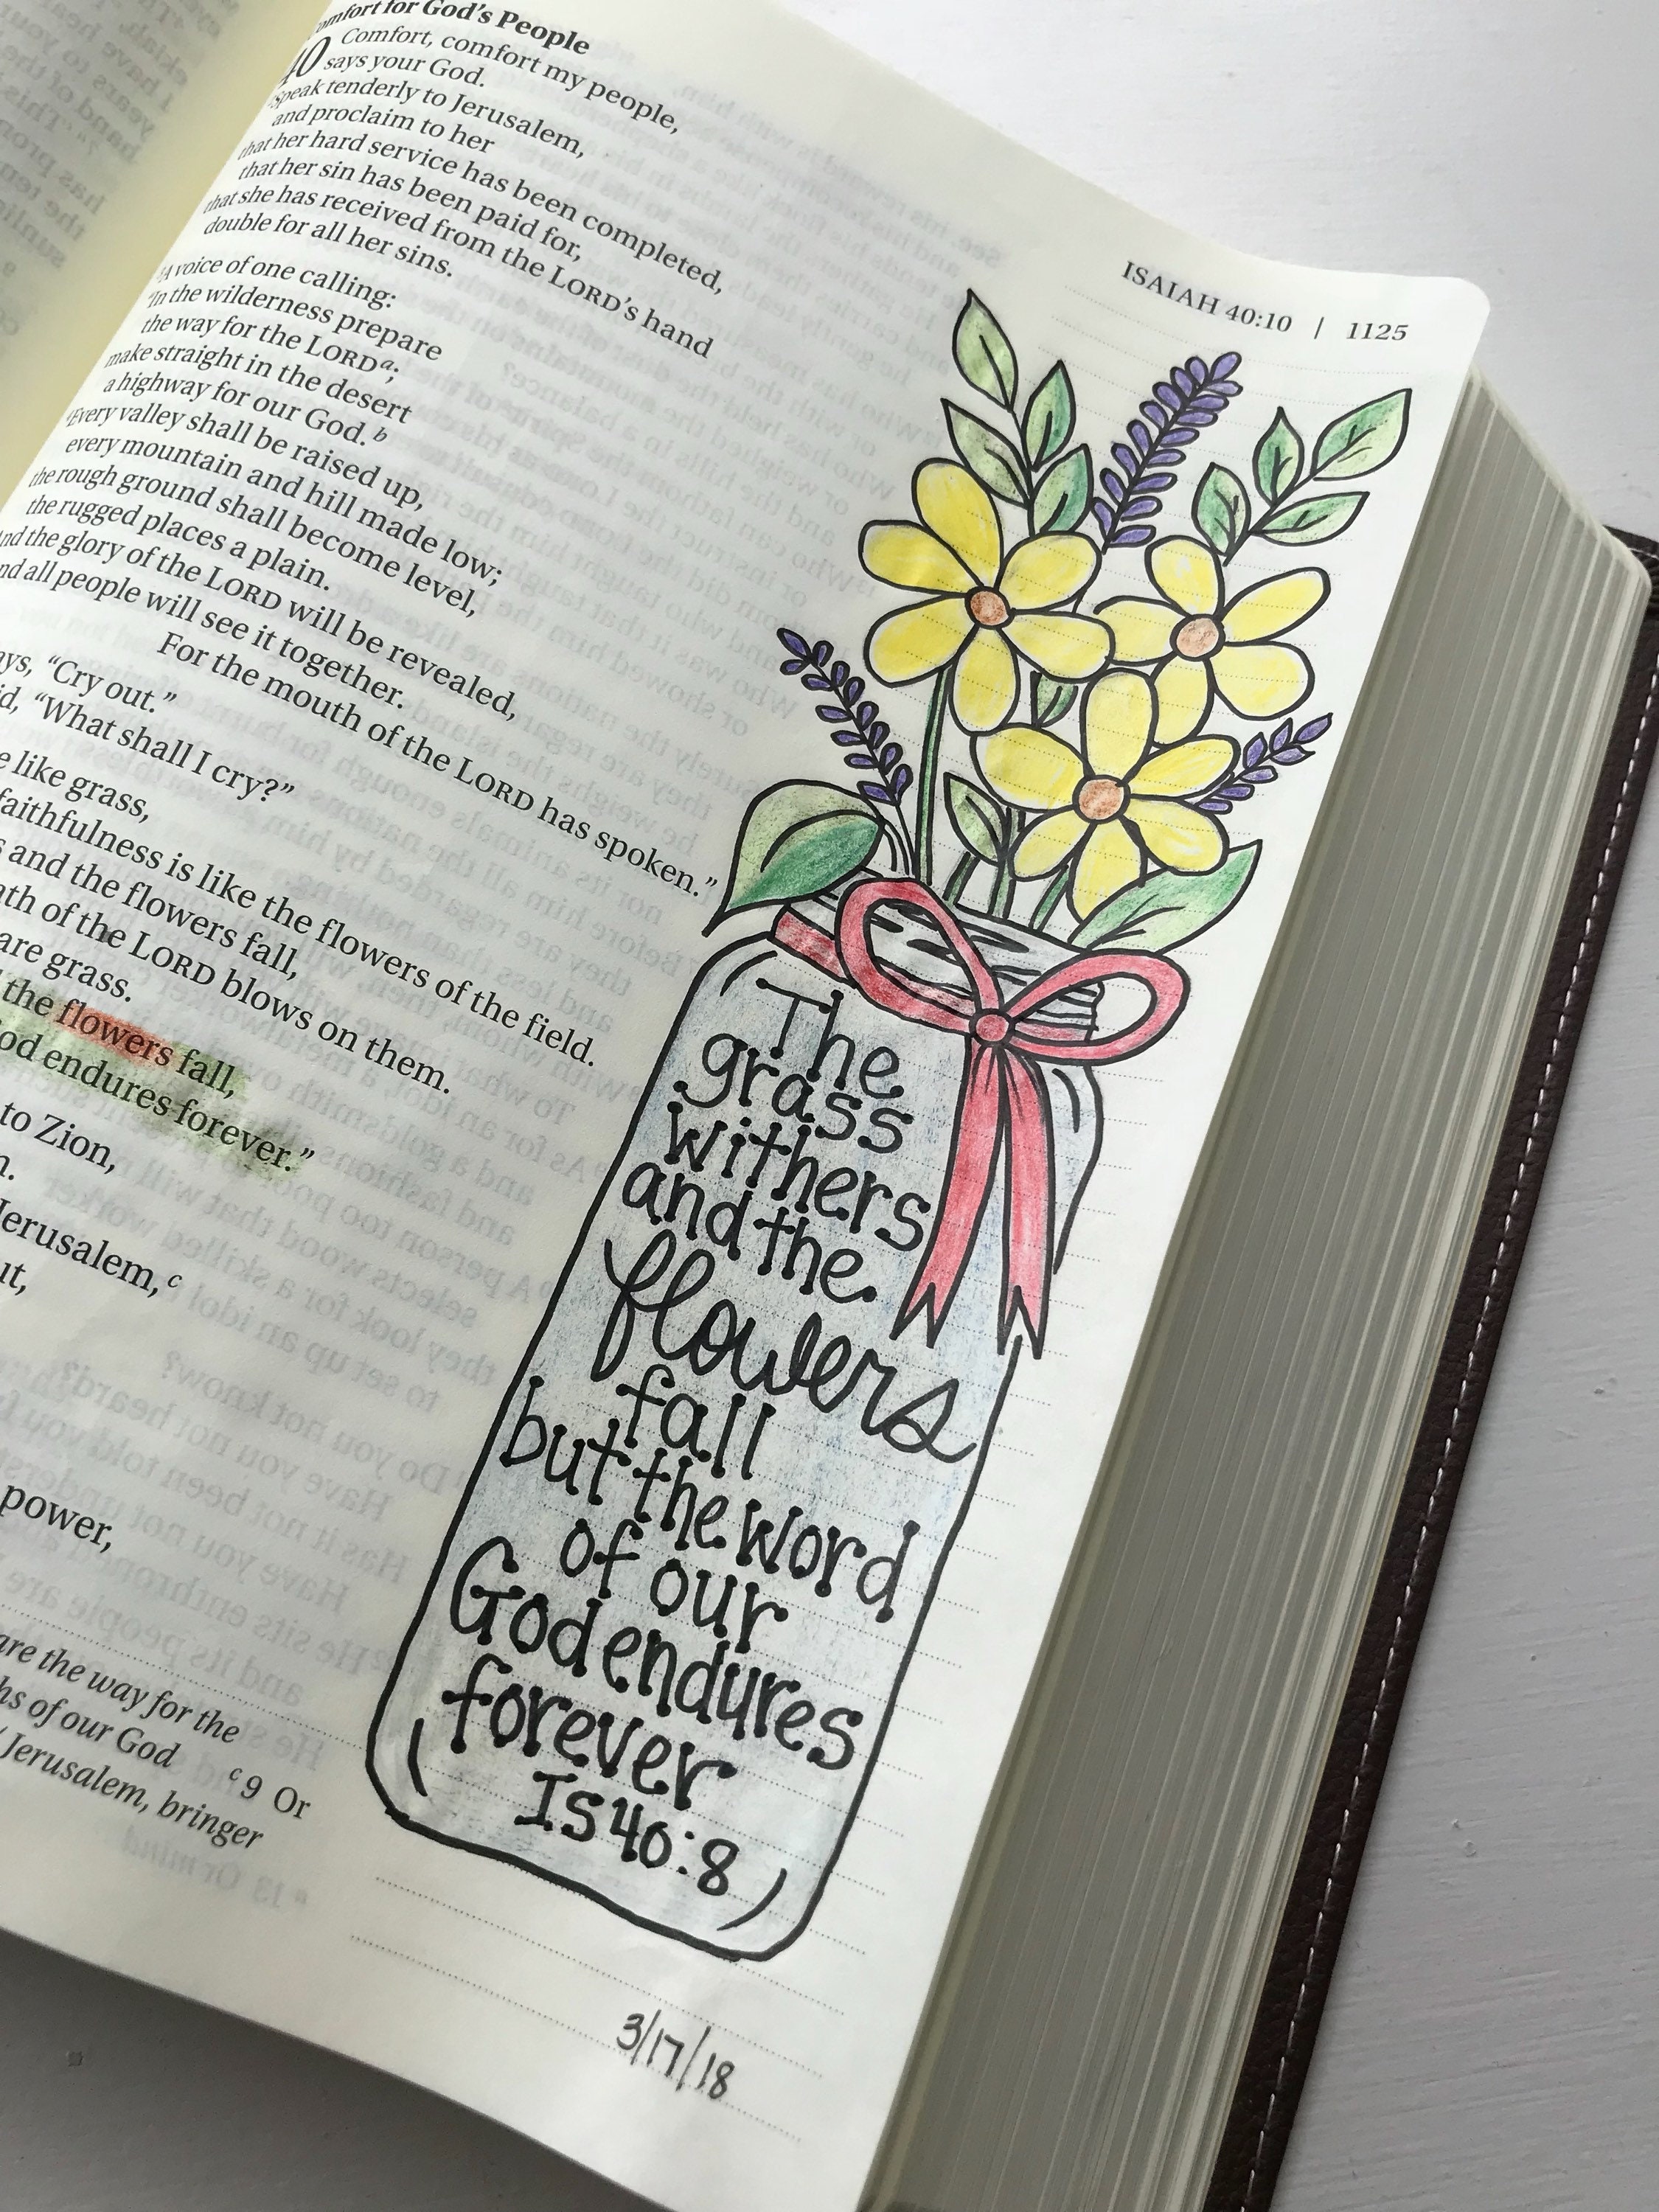 Comfort for God's People
40 Comfort, comfort my people,
says your God.
Speak tenderly to Jerusalem,
and proclaim to her
that her hard service has been completed,
that her sin has been paid for,
that she has received from the LORD's hand
double for all her sins.
A voice of one calling:
"In the wilderness prepare
the way for the LORD a;
make straight in the desert
a highway for our God. b
Every valley shall be raised up,
every mountain and hill made low;
the rough ground shall become level,
the rugged places a plain.
And the glory of the LORD will be revealed,
and all people will see it together.
For the mouth of the LORD has spoken."
"Cry out."
"What shall I cry?"
like grass,
faithfulness is like the flowers of the field.
and the flowers fall,
of the LORD blows on them.
are grass.
the flowers fall,
endures forever."
to Zion,
Jerusalem, c
power,
the way for the
of our God c 9 Or
Jerusalem, bringer
ISAIAH 40:10 | 1125
The
grass
withers
and the
flowers
fall
but the word
of our
God endures
forever
Is 40:8
3/17/18